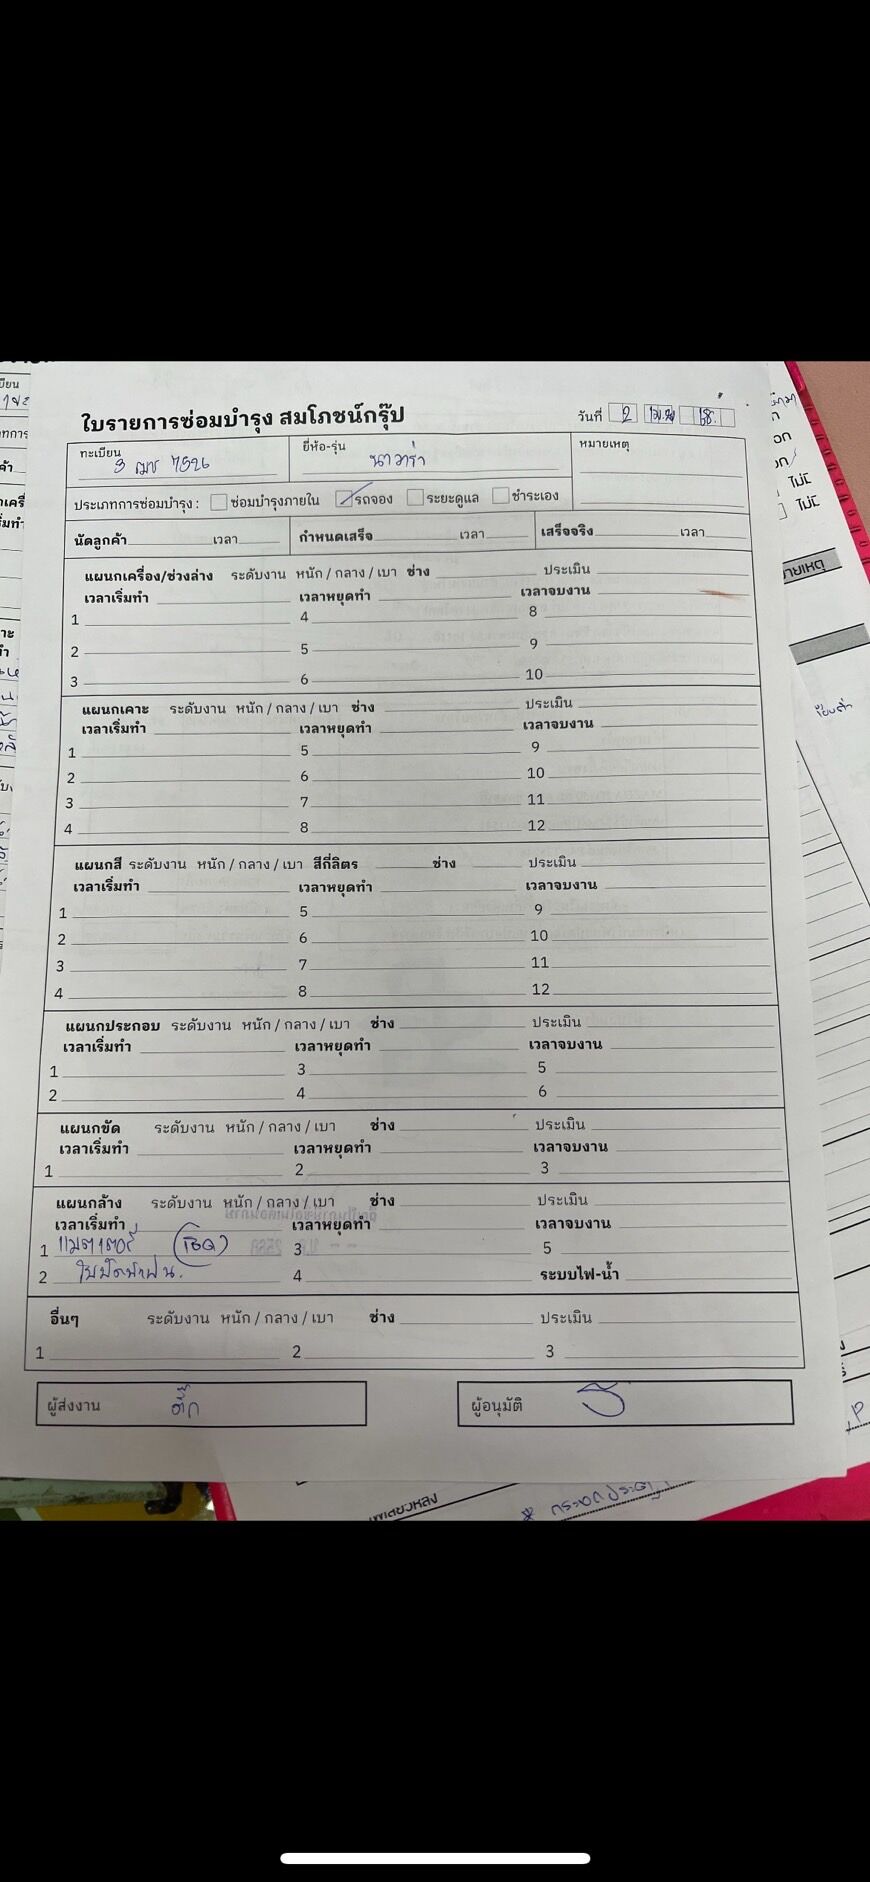 ใบรายการซ่อมบำรุง สมโภชน์กรุ๊ป
วันที่ 2 68.
ทะเบียน 3 ฒช 7526 ยี่ห้อ-รุ่น นาวาร่า หมายเหตุ
ประเภทการซ่อมบำรุง : ซ่อมบำรุงภายใน รถจอง ระยะดูแล ชำระเอง
นัดลูกค้า เวลา กำหนดเสร็จ เวลา เสร็จจริง เวลา
แผนกเครื่อง/ช่วงล่าง ระดับงาน หนัก / กลาง / เบา ช่าง ประเมิน
เวลาเริ่มทำ เวลาหยุดทำ เวลาจบงาน
1 4 8
2 5 9
3 6 10
แผนกเคาะ ระดับงาน หนัก / กลาง / เบา ช่าง ประเมิน
เวลาเริ่มทำ เวลาหยุดทำ เวลาจบงาน
1 5 9
2 6 10
3 7 11
4 8 12
แผนกสี ระดับงาน หนัก / กลาง / เบา สีกี่ลิตร ช่าง ประเมิน
เวลาเริ่มทำ เวลาหยุดทำ เวลาจบงาน
1 5 9
2 6 10
3 7 11
4 8 12
แผนกประกอบ ระดับงาน หนัก / กลาง / เบา ช่าง ประเมิน
เวลาเริ่มทำ เวลาหยุดทำ เวลาจบงาน
1 3 5
2 4 6
แผนกขัด ระดับงาน หนัก / กลาง / เบา ช่าง ประเมิน
เวลาเริ่มทำ เวลาหยุดทำ เวลาจบงาน
1 2 3
แผนกล้าง ระดับงาน หนัก / กลาง / เบา ช่าง ประเมิน
เวลาเริ่มทำ เวลาหยุดทำ เวลาจบงาน
1 แบตเตอรี่ (เช็ค) 3 5
2 ใบปัดน้ำฝน. 4 ระบบไฟ-น้ำ
อื่นๆ ระดับงาน หนัก / กลาง / เบา ช่าง ประเมิน
1 2 3
ผู้ส่งงาน ติ๊ก ผู้อนุมัติ